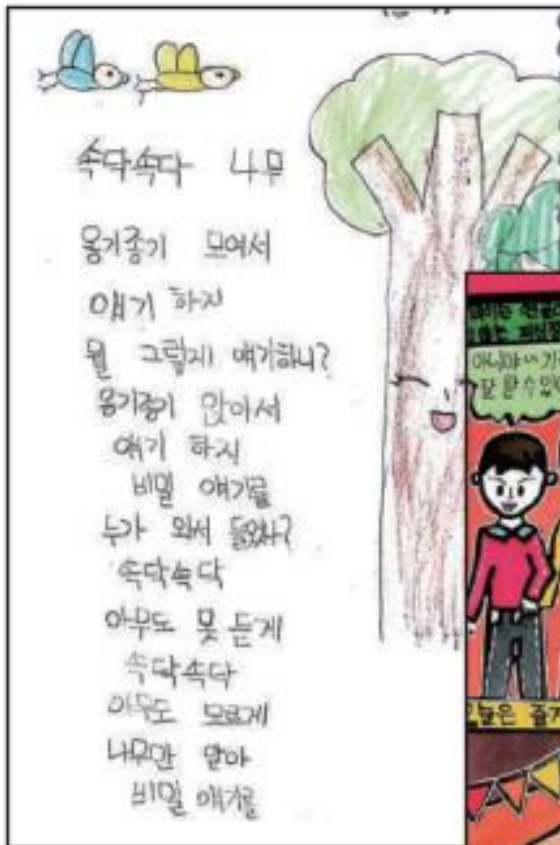 속닥속닥 나무
옹기종기 모여서
얘기 하지
뭘 그렇게 얘기하니?
옹기종기 앉아서
얘기 하지
비밀 얘기를
누가 와서 들었나?
속닥속닥
아무도 못 듣게
속닥속닥
아무도 모르게
나무만 알아
비밀 얘기를
아니야 내
잘 할 수 있
오늘은 즐거